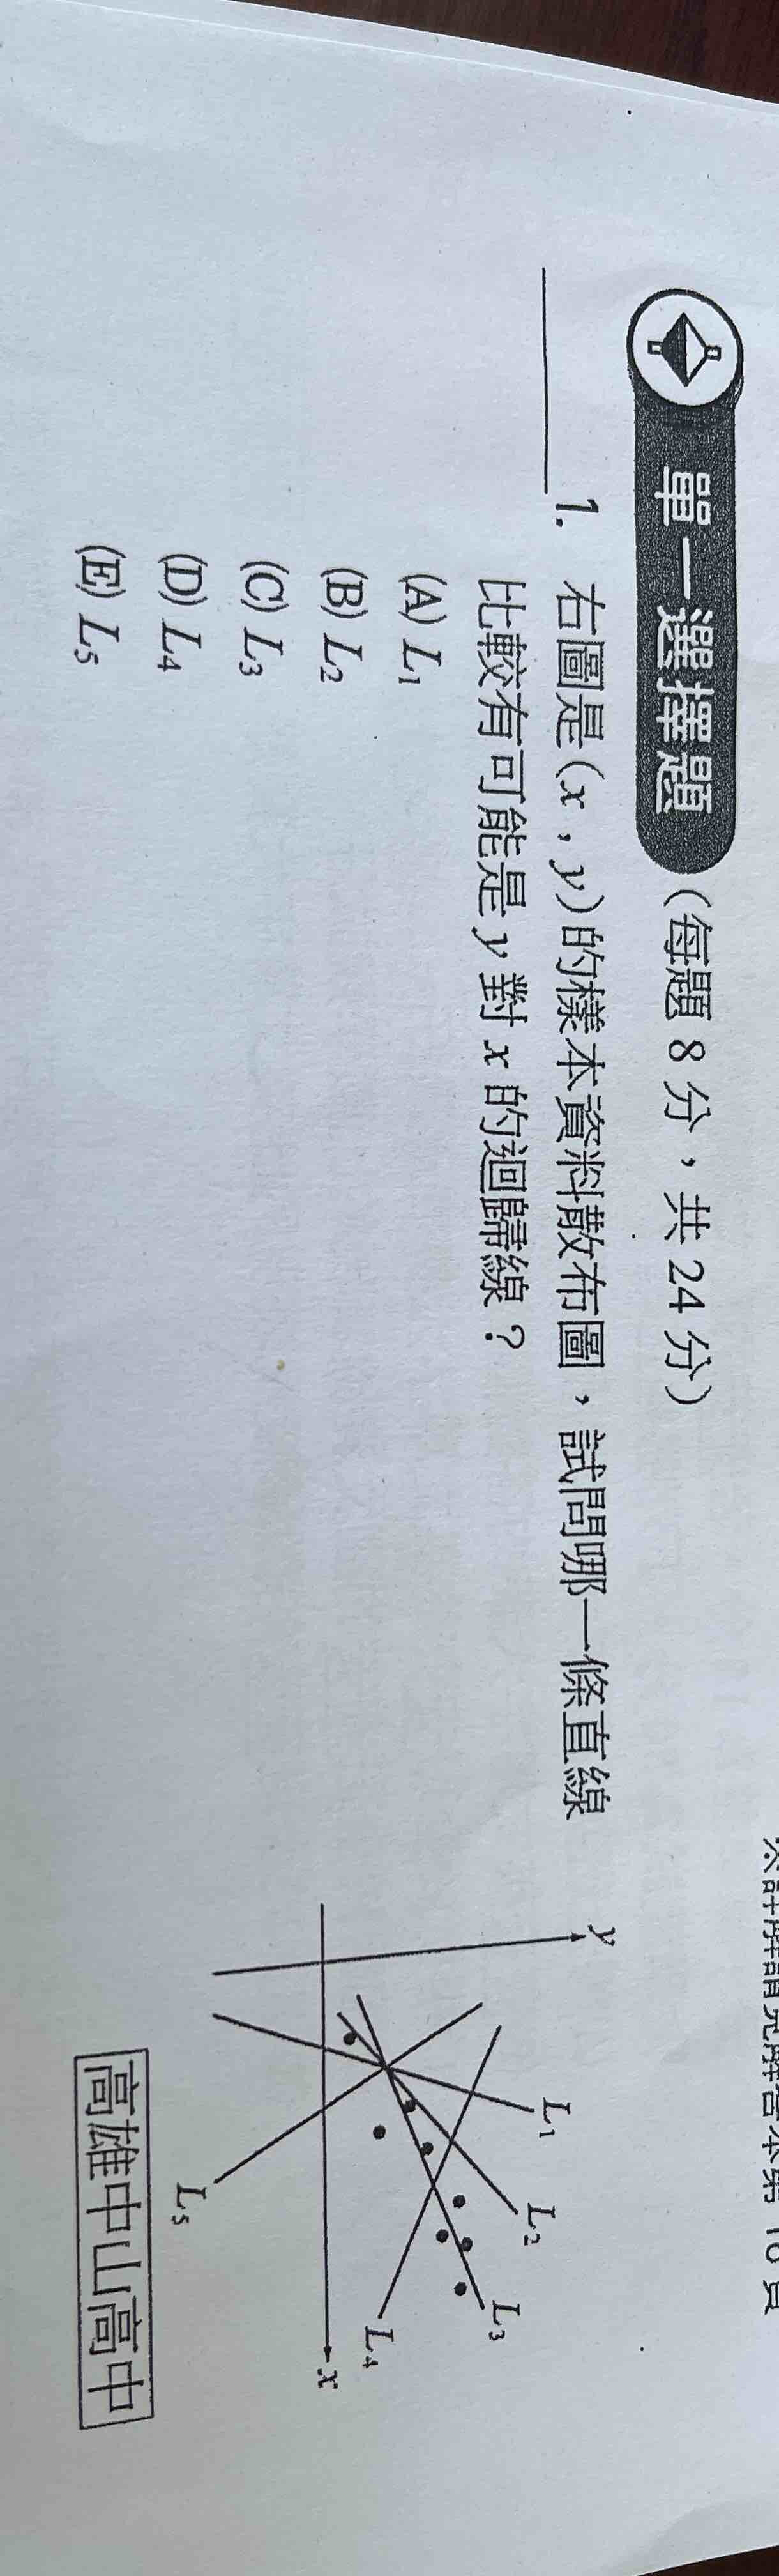 單一選擇題（每題 8 分，共 24 分）
1. 右圖是(x , y)的樣本資料散布圖，試問哪一條直線
比較有可能是 y 對 x 的迴歸線？
(A) L₁
(B) L₂
(C) L₃
(D) L₄
(E) L₅
y
L₁
L₂
L₃
L₄
x
L₅
高雄中山高中